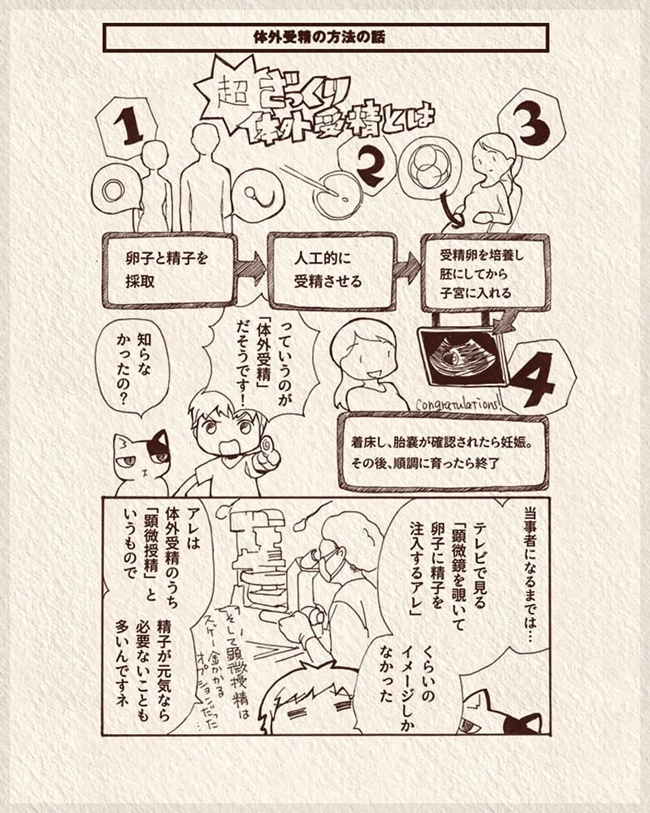 体外受精の方法の話
超ざっくり
体外受精とは
1
2
3
卵子と精子を
採取
人工的に
受精させる
受精卵を培養し
胚にしてから
子宮に入れる
4
Congratulations!
着床し、胎嚢が確認されたら妊娠。
その後、順調に育ったら終了
っていうのが
「体外受精」
だそうです!
知らな
かったの?
当事者になるまでは…
テレビで見る
「顕微鏡を覗いて
卵子に精子を
注入するアレ」
くらいの
イメージしか
なかった
アレは
体外受精のうち
「顕微授精」と
いうもので
精子が元気なら
必要ないことも
多いんですネ
そして顕微授精は
スゲー金かかる
オプションだった…